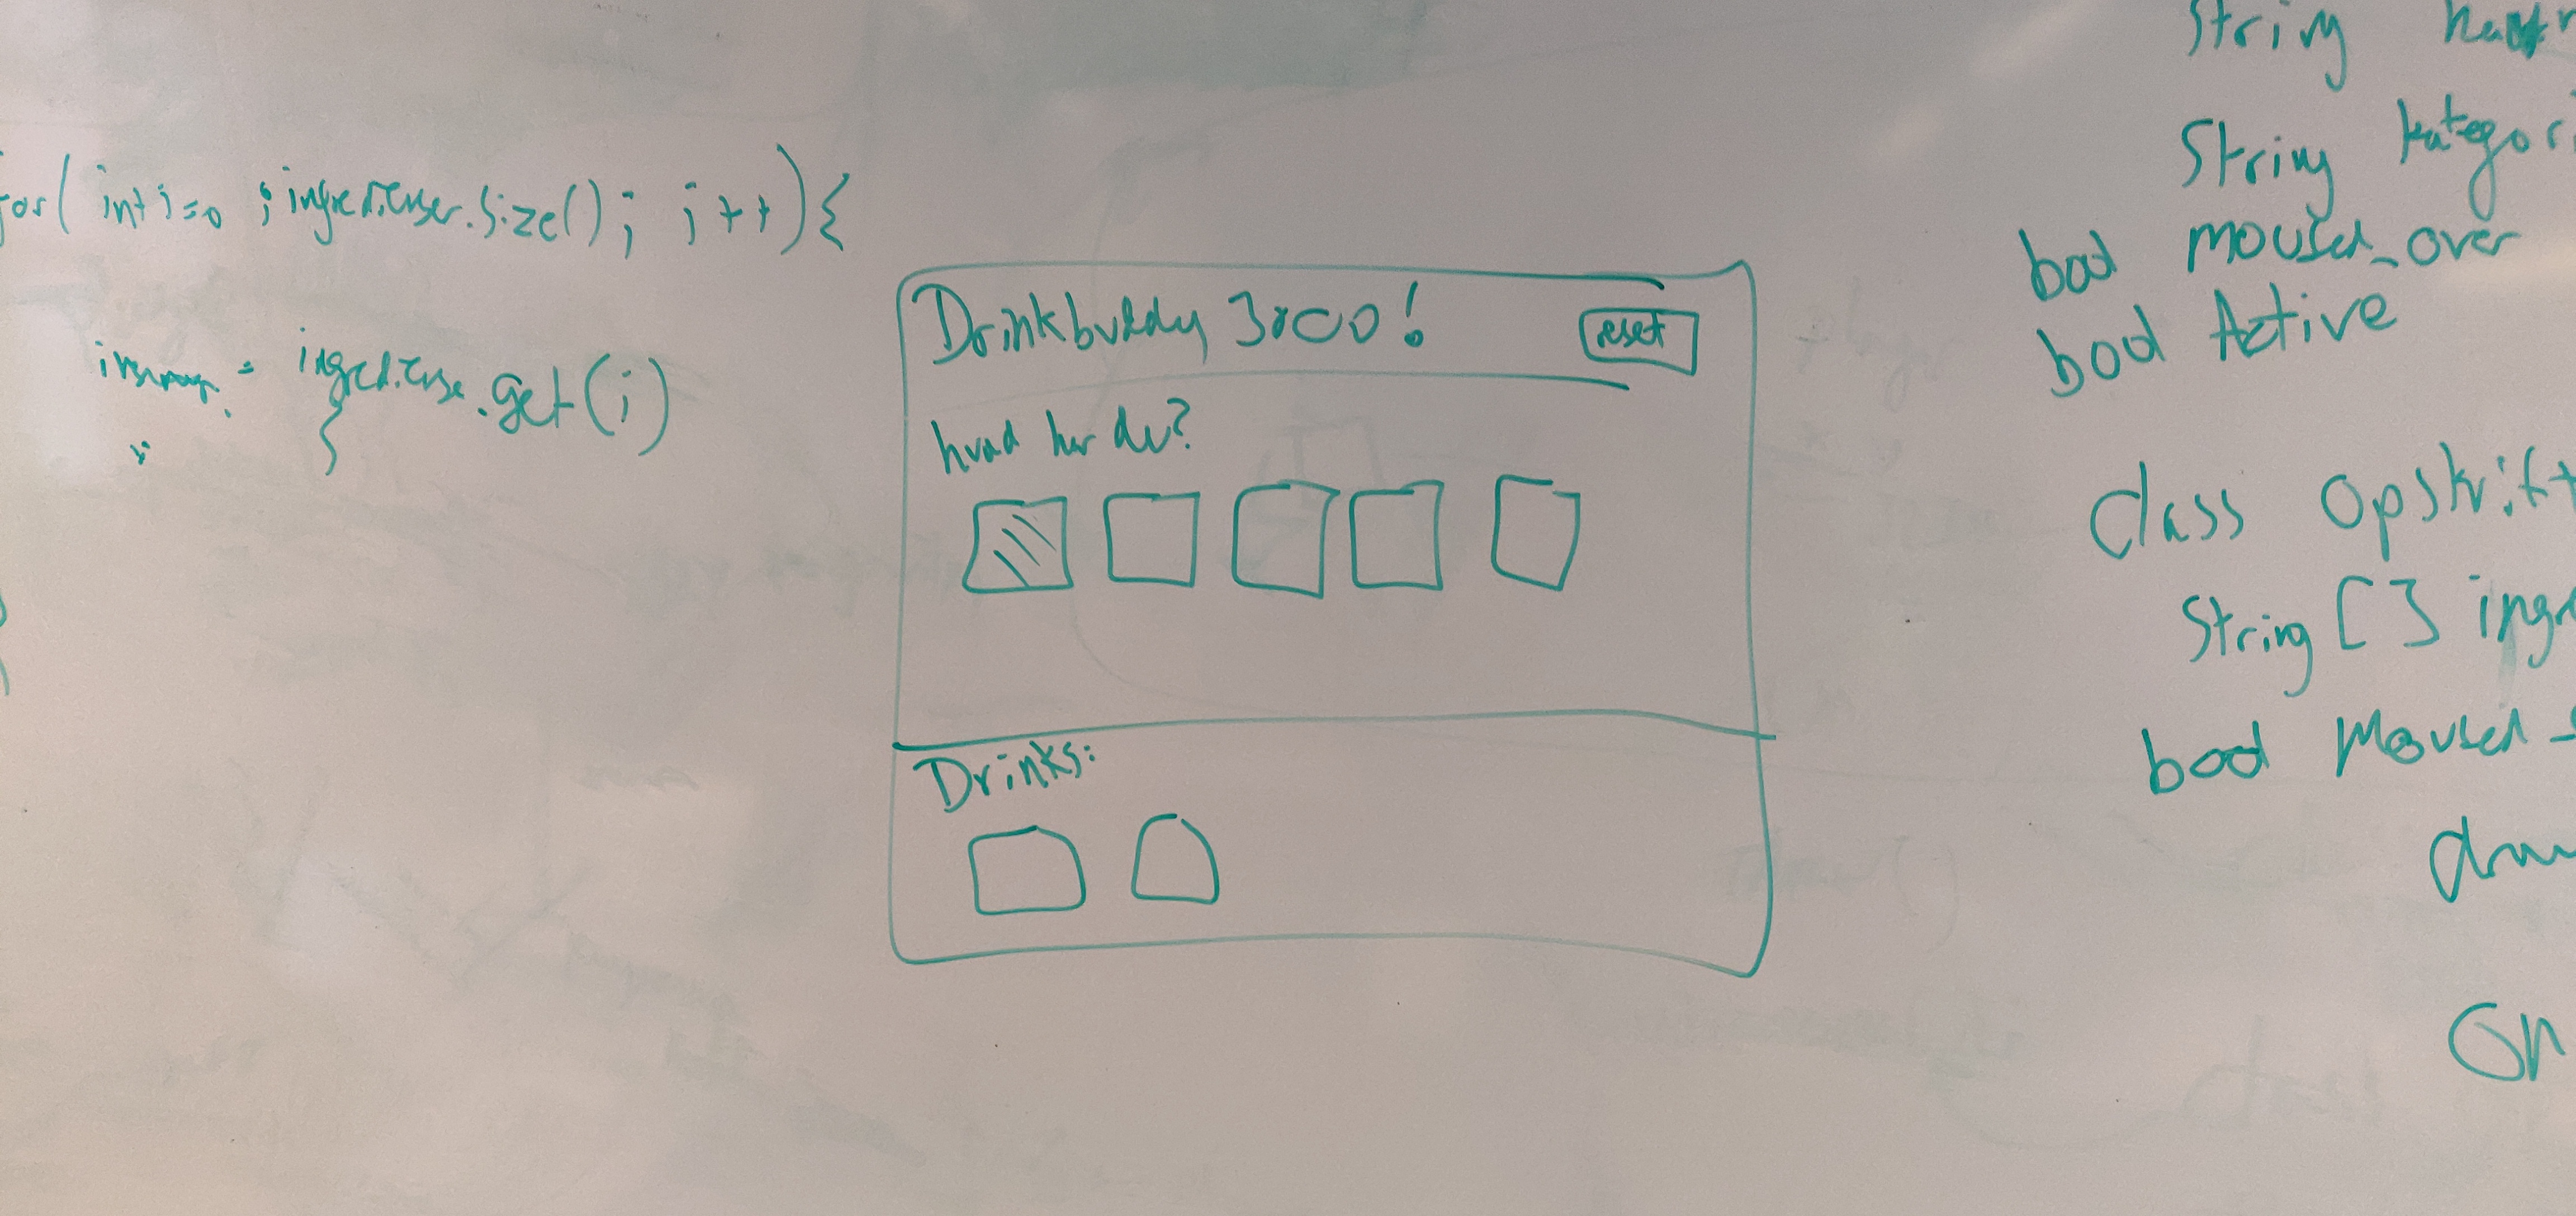 for( int i=0 ; ingredienser.size(); i++){
= ingrediense.get(i)
}
Drinkbuddy 3000!
reset
hvad har du?
Drinks:
String
String kategori
bool mouse_over
bool Active
class Opskrift
String[] ingr
bool Mouse_